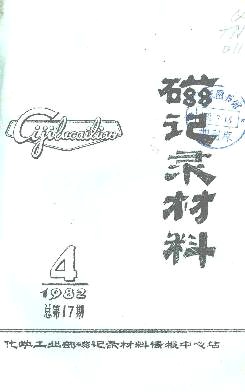 磁记录材料
Cijilucailiao
4
1982
总第17期
化学工业部磁记录材料情报中心站